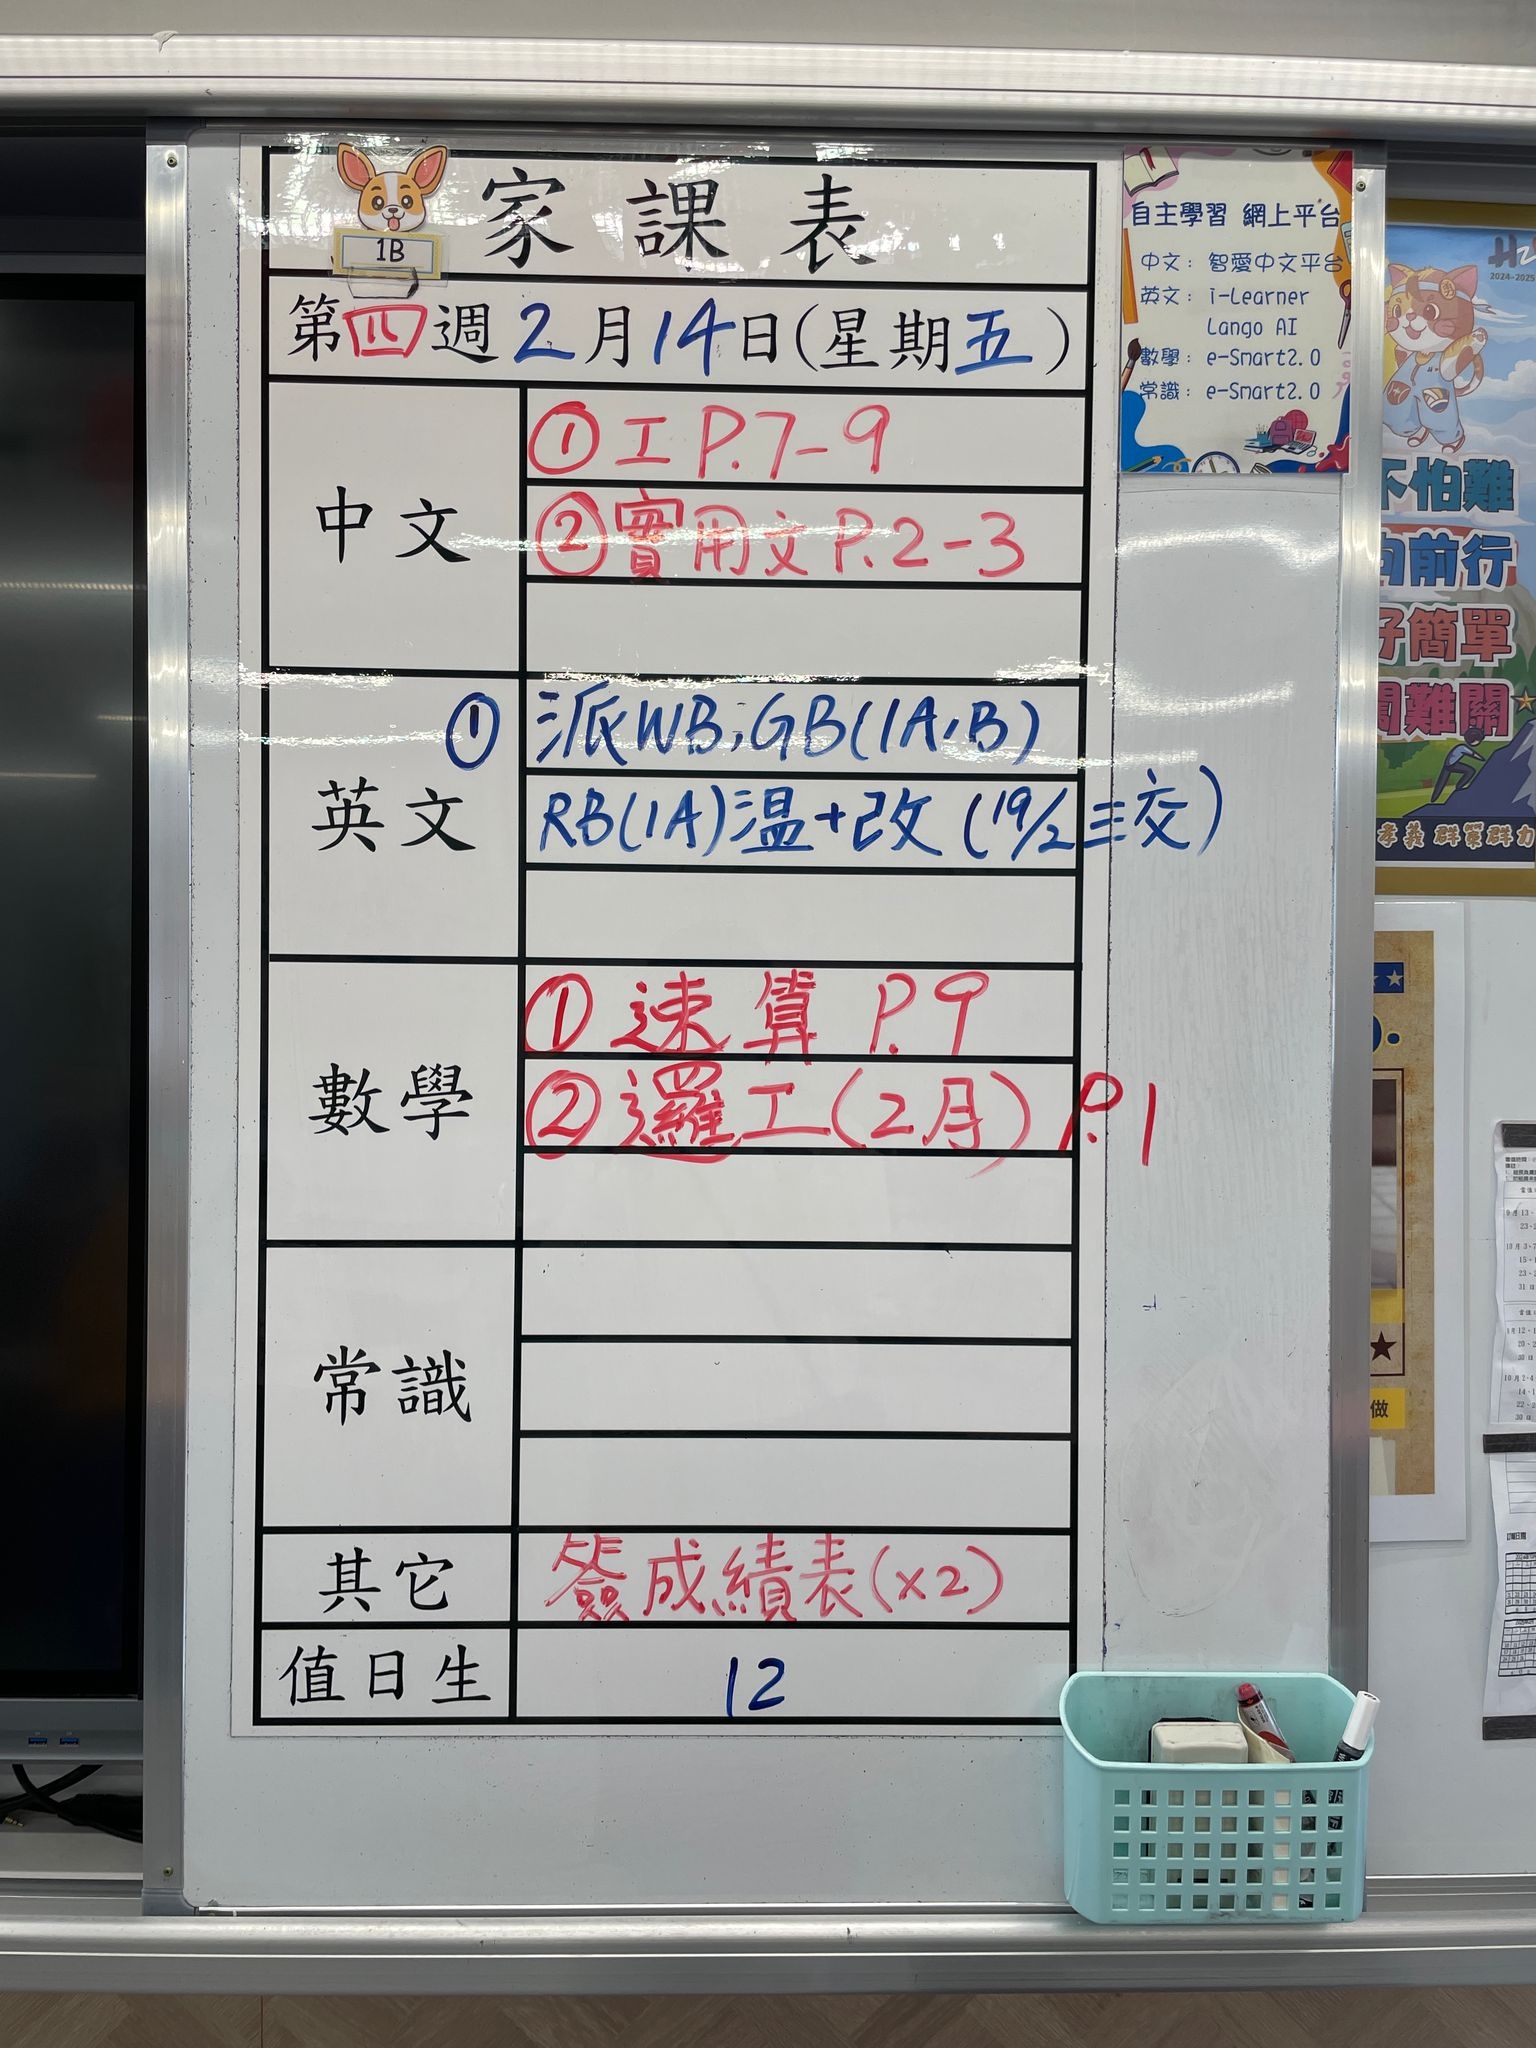 1B
家課表
第四週2月14日(星期五)
中文
①工P.7-9
②實用文P.2-3
英文
①派WB;GB(1A,B)
RB(1A)溫+改(19/2三交)
數學
①速算 P.9
②邏工(2月) P.1
常識
其它
簽成績表(x2)
值日生
12
自主學習 網上平台
中文：智愛中文平台
英文：i-Learner
Lango AI
數學：e-Smart2.0
常識：e-Smart2.0
2024-2025
不怕難
向前行
好簡單
闖難關
孝義 群策群力
做